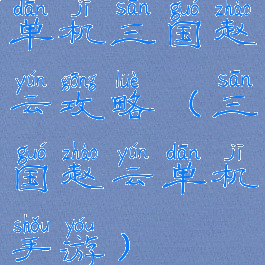 dān jī sān guó zhào
单机三国赵
yún gōng lüè sān
云攻略(三
guó zhào yún dān jī
国赵云单机
shǒu yóu
手游)